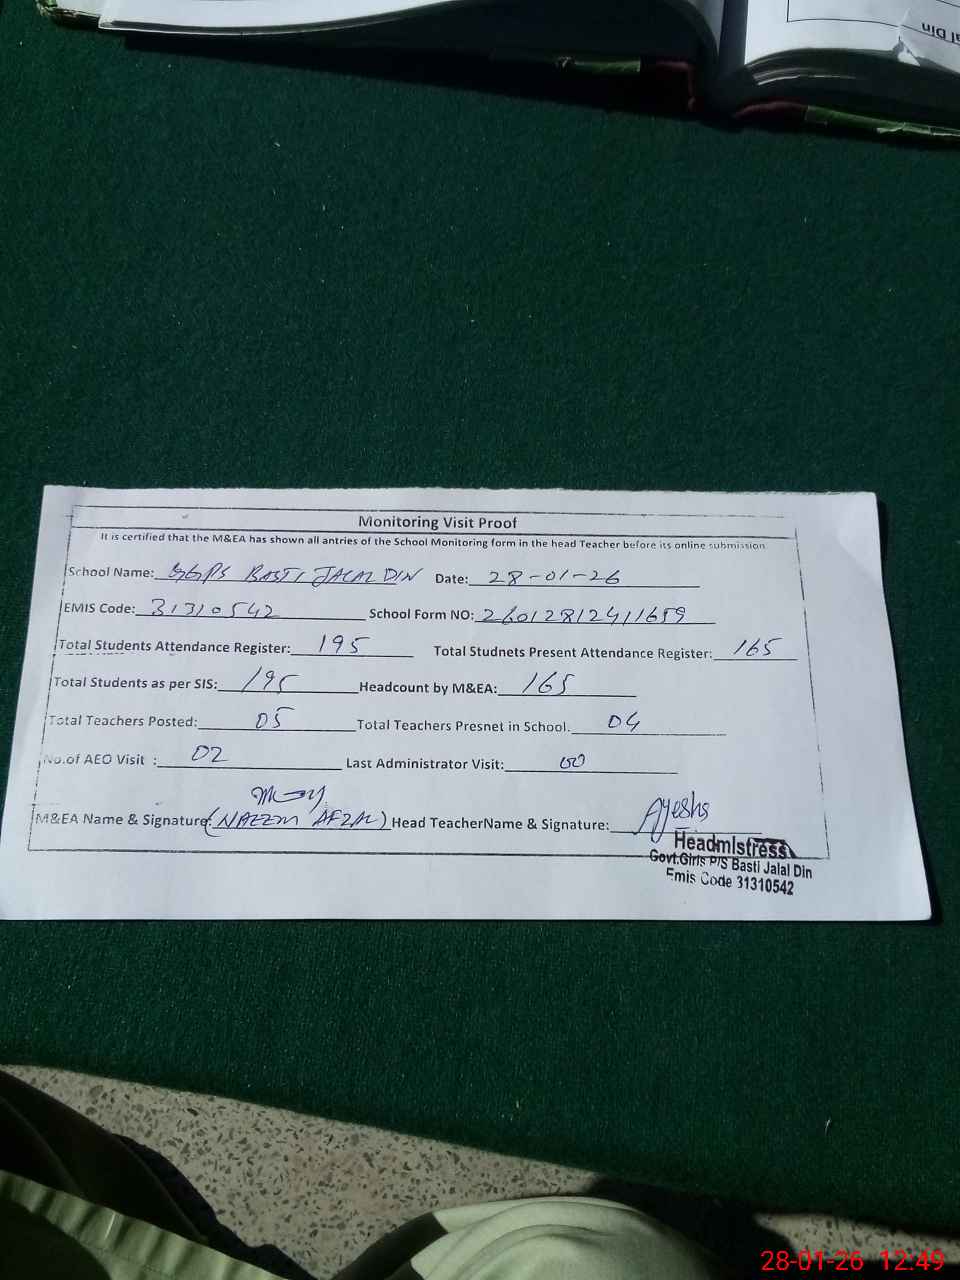 al Din
Monitoring Visit Proof
It is certified that the M&EA has shown all antries of the School Monitoring form in the head Teacher before its online submission
School Name: GGPS BASTI JALAL DIN Date: 28-01-26
EMIS Code: 31310542 School Form NO: 26012812411659
Total Students Attendance Register: 195 Total Studnets Present Attendance Register: 165
Total Students as per SIS: 195 Headcount by M&EA: 165
Total Teachers Posted: 05 Total Teachers Presnet in School. 04
No.of AEO Visit : 02 Last Administrator Visit: 00
M&EA Name & Signature (NAEEM AFZAL) Head TeacherName & Signature: Ayesha
HeadmIstress
Govt.Girls P/S Basti Jalal Din
Emis Code 31310542
28-01-26 12:49